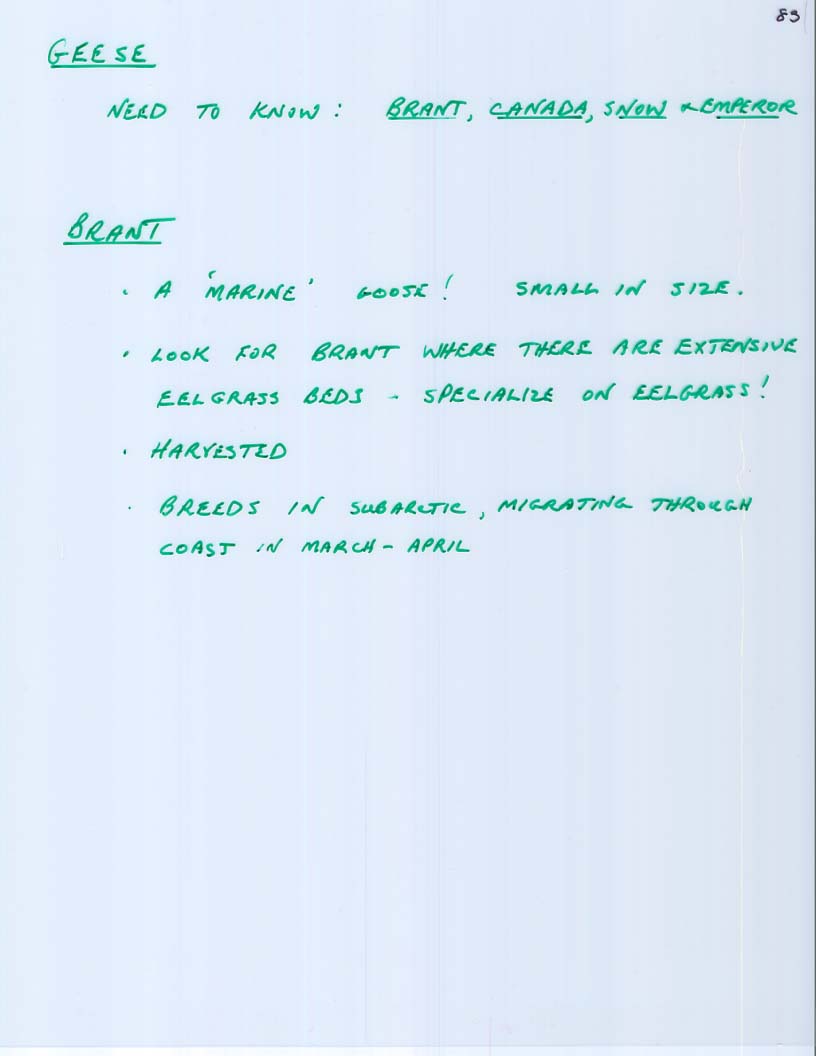 83
GEESE
NEED TO KNOW: BRANT, CANADA, SNOW & EMPEROR
BRANT
· A 'MARINE' GOOSE! SMALL IN SIZE.
· LOOK FOR BRANT WHERE THERE ARE EXTENSIVE
EELGRASS BEDS - SPECIALIZE ON EELGRASS!
· HARVESTED
· BREEDS IN SUBARCTIC, MIGRATING THROUGH
COAST IN MARCH - APRIL